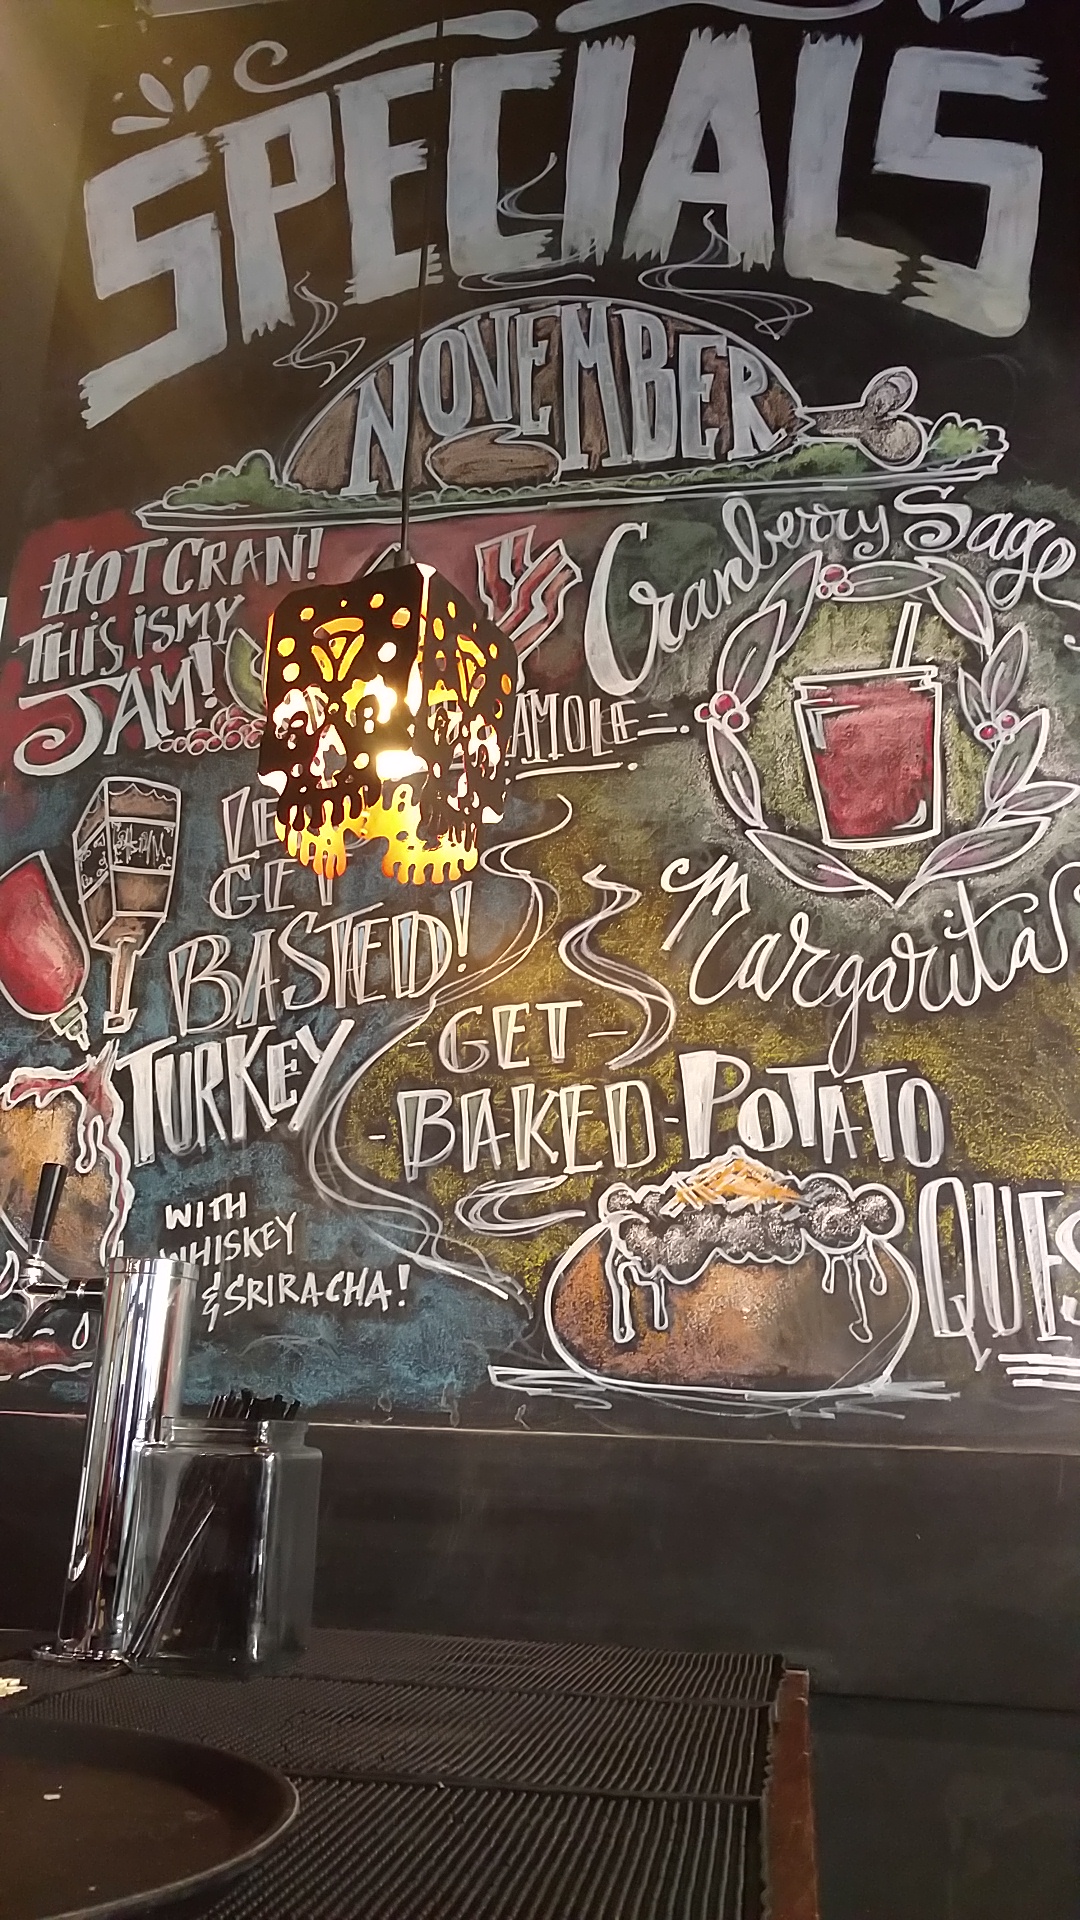 SPECIALS
NOVEMBER
HOT CRAN!
THIS IS MY
JAM!
Cranberry Sage
Margarita
GET
BASTED!
TURKEY
WITH
WHISKEY
& SRIRACHA!
-GET-
-BAKED-POTATO